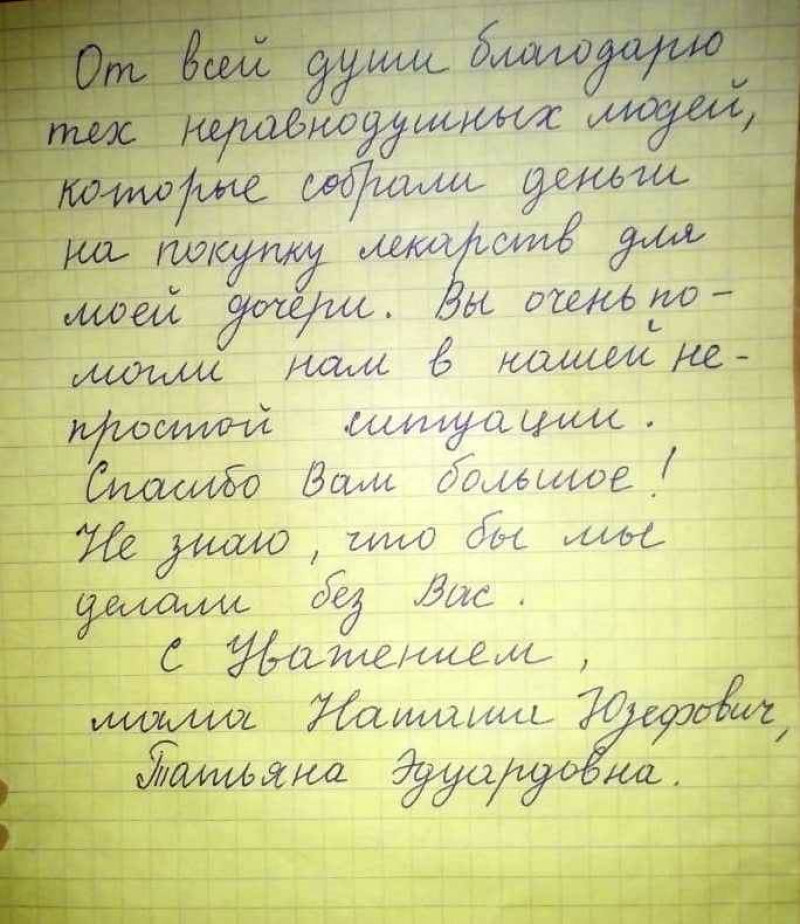 От всей души благодарю
тех неравнодушных людей,
которые собрали деньги
на покупку лекарств для
моей дочери. Вы очень по-
могли нам в нашей не-
простой ситуации.
Спасибо Вам большое!
Не знаю, что бы мы
делали без Вас.
С Уважением,
мама Наташи Юзефович,
Татьяна Эдуардовна.